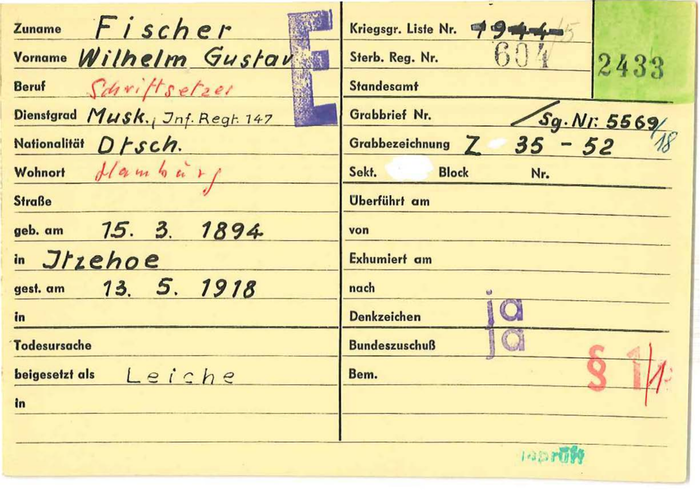 Zuname Fischer
Vorname Wilhelm Gustav
E
Beruf Schriftsetzer
Dienstgrad Musk., Inf. Regt. 147
Nationalität Dtsch.
Wohnort Hamburg
Straße
geb. am 15. 3. 1894
in Itzehoe
gest. am 13. 5. 1918
in
Todesursache
beigesetzt als Leiche
in
Kriegsgr. Liste Nr.
Sterb. Reg. Nr. 604
2433
Standesamt
Grabbrief Nr. Sg. Nr. 5569/18
Grabbezeichnung Z 35 - 52
Sekt. Block Nr.
Überführt am
von
Exhumiert am
nach
Denkzeichen ja
Bundeszuschuß ja
Bem. § 1/1